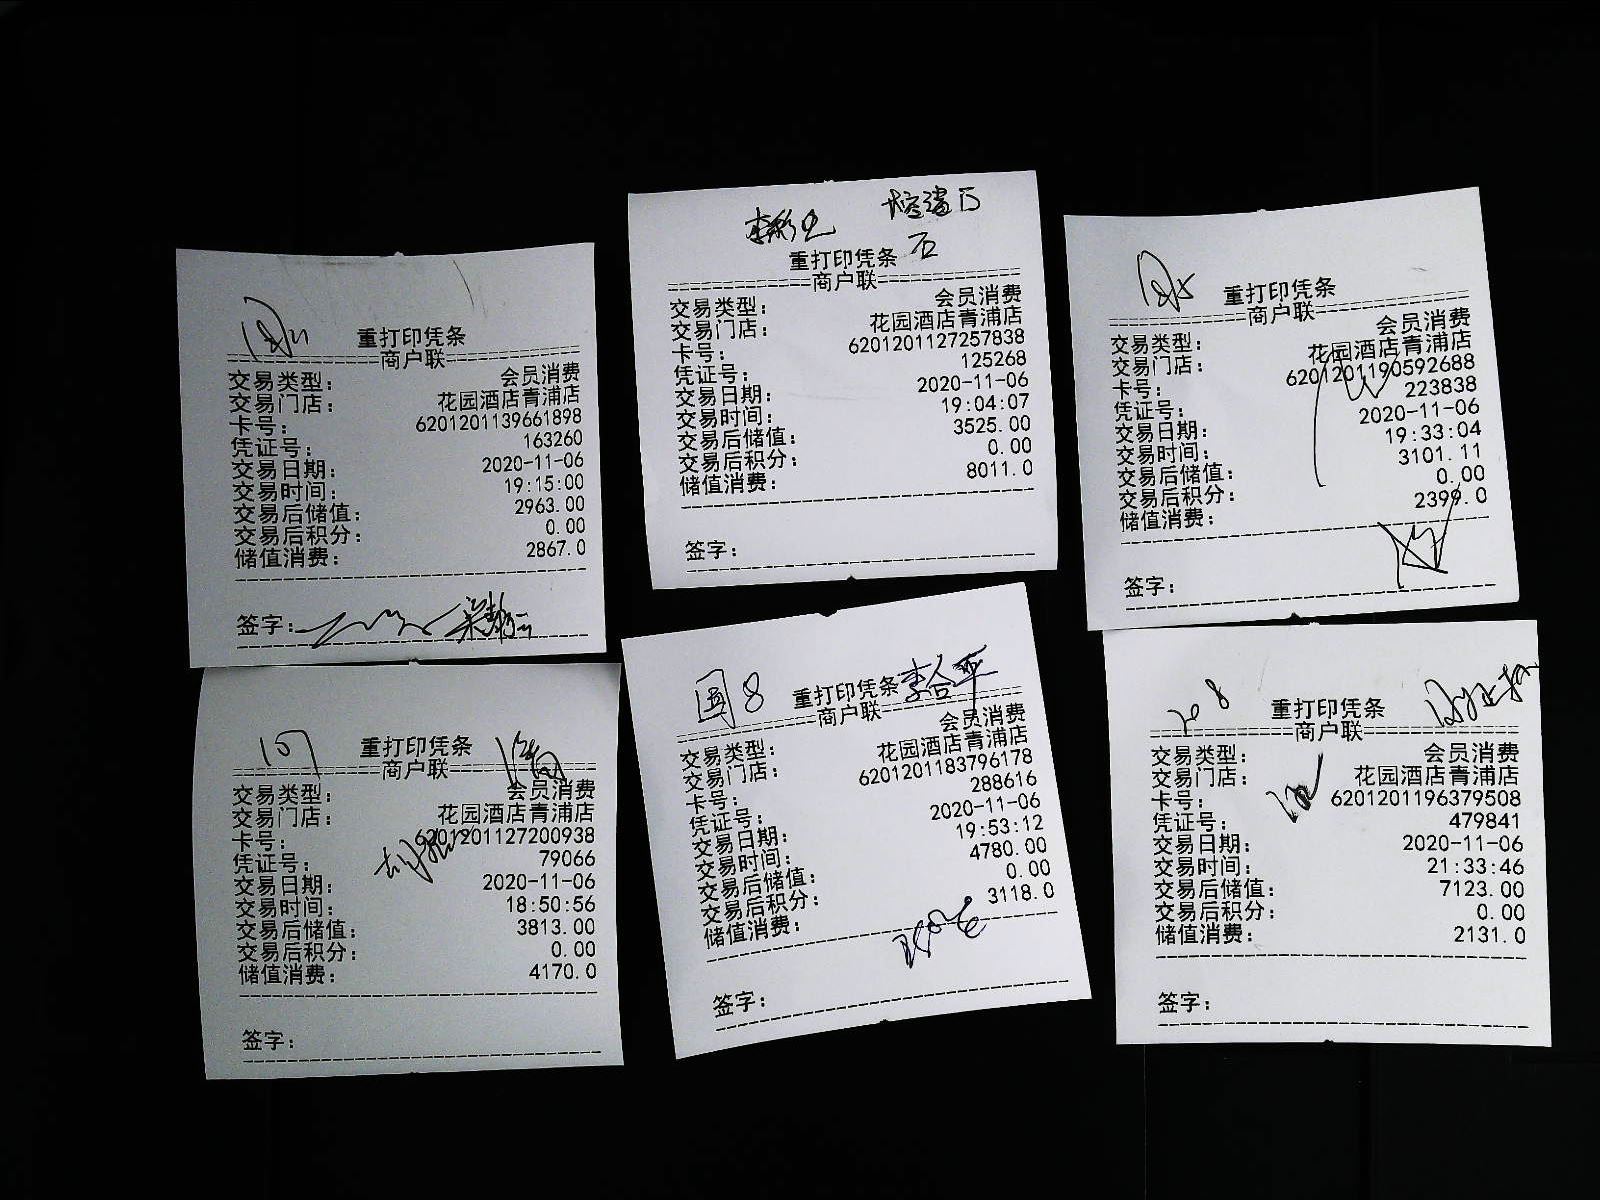 重打印凭条
商户联
交易类型: 会员消费
交易门店: 花园酒店青浦店
卡号: 6201201139661898
凭证号: 163260
交易日期: 2020-11-06
交易时间: 19:15:00
交易后储值: 2963.00
交易后积分: 0.00
储值消费: 2867.0
签字:
李彬
重打印凭条
商户联
交易类型: 会员消费
交易门店: 花园酒店青浦店
卡号: 6201201127257838
凭证号: 125268
交易日期: 2020-11-06
交易时间: 19:04:07
交易后储值: 3525.00
交易后积分: 0.00
储值消费: 8011.0
签字:
重打印凭条
商户联
交易类型: 会员消费
交易门店: 花园酒店青浦店
卡号: 6201201190592688
凭证号: 223838
交易日期: 2020-11-06
交易时间: 19:33:04
交易后储值: 3101.11
交易后积分: 0.00
储值消费: 2399.0
签字:
107
重打印凭条
商户联
交易类型: 会员消费
交易门店: 花园酒店青浦店
卡号: 6201201127200938
凭证号: 79066
交易日期: 2020-11-06
交易时间: 18:50:56
交易后储值: 3813.00
交易后积分: 0.00
储值消费: 4170.0
签字:
圆8 重打印凭条 李合平
商户联
交易类型: 会员消费
交易门店: 花园酒店青浦店
卡号: 6201201183796178
凭证号: 288616
交易日期: 2020-11-06
交易时间: 19:53:12
交易后储值: 4780.00
交易后积分: 0.00
储值消费: 3118.0
签字:
208 重打印凭条
商户联
交易类型: 会员消费
交易门店: 花园酒店青浦店
卡号: 6201201196379508
凭证号: 479841
交易日期: 2020-11-06
交易时间: 21:33:46
交易后储值: 7123.00
交易后积分: 0.00
储值消费: 2131.0
签字: